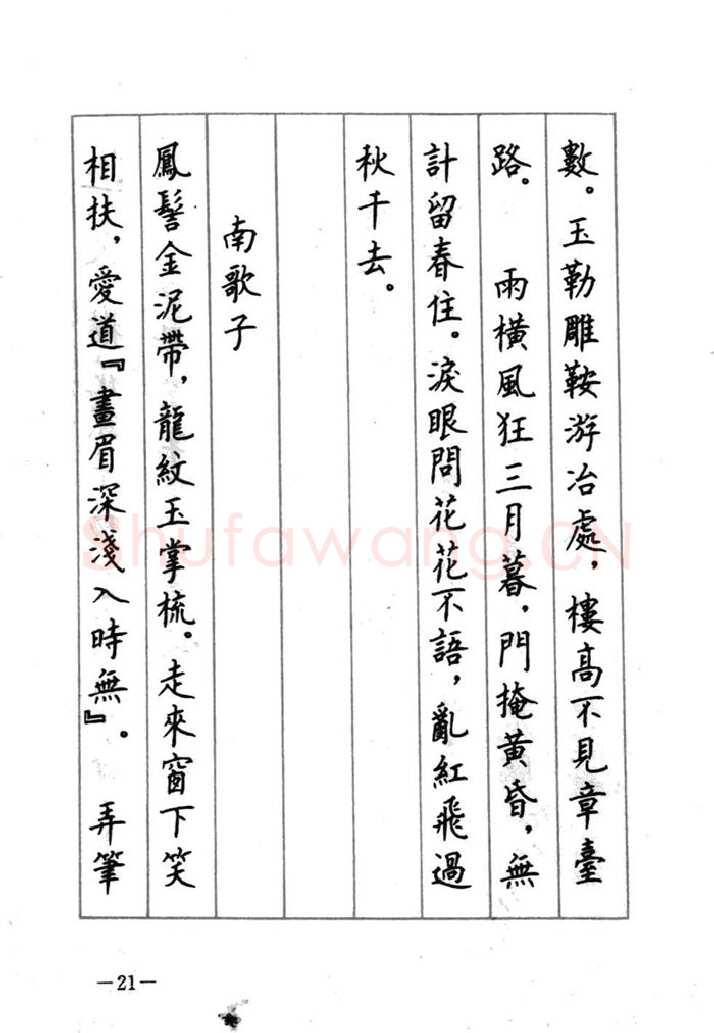 數。玉勒雕鞍游冶處，樓高不見章臺
路。　雨橫風狂三月暮，門掩黃昏，無
計留春住。淚眼問花花不語，亂紅飛過
秋千去。
南歌子
鳳髻金泥帶，龍紋玉掌梳。走來窗下笑
相扶，愛道『畫眉深淺入時無』。　弄筆
—21—
Shufawang.CN